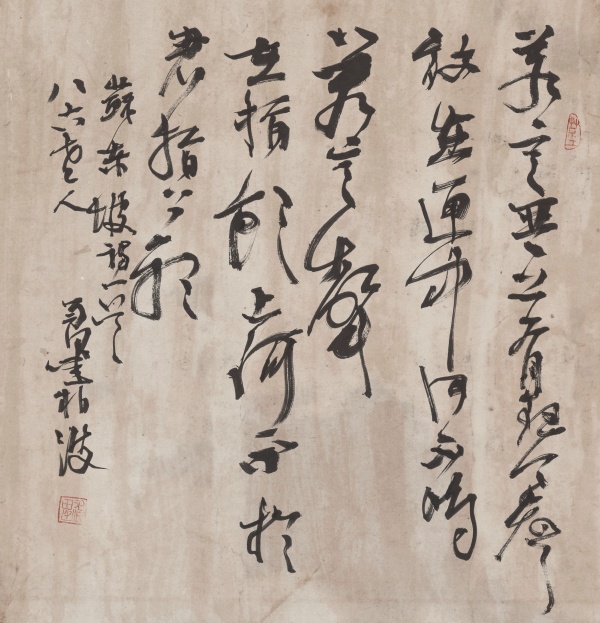 若言琴上有琴聲
放在匣中何不鳴
若言聲
在指頭上何不於
君指上聽
蘇東坡詩一首
八六老人
柏波